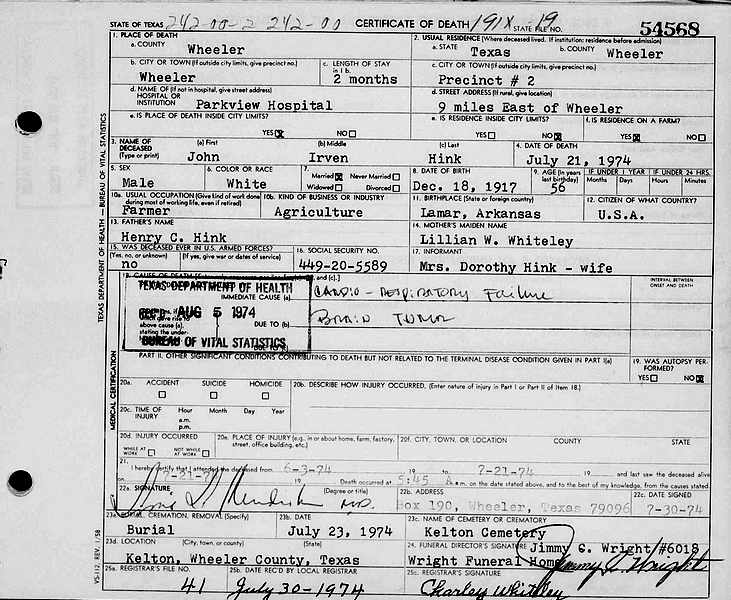 STATE OF TEXAS 242-00-2 242-00 CERTIFICATE OF DEATH 191X -19 STATE FILE NO. 54568
1. PLACE OF DEATH 2. USUAL RESIDENCE (Where deceased lived. If institution: residence before admission)
a. COUNTY Wheeler a. STATE Texas b. COUNTY Wheeler
b. CITY OR TOWN (If outside city limits, give precinct no.) c. LENGTH OF STAY in 1 b. c. CITY OR TOWN (If outside city limits, give precinct no.)
Wheeler 2 months Precinct # 2
d. NAME OF (If not in hospital, give street address) HOSPITAL OR INSTITUTION Parkview Hospital d. STREET ADDRESS (If rural, give location)
9 miles East of Wheeler
e. IS PLACE OF DEATH INSIDE CITY LIMITS? e. IS RESIDENCE INSIDE CITY LIMITS? f. IS RESIDENCE ON A FARM?
YES☒ NO☐ YES☐ NO☒ YES☒ NO☐
3. NAME OF DECEASED (Type or print) (a) First (b) Middle (c) Last 4. DATE OF DEATH
John Irven Hink July 21, 1974
5. SEX 6. COLOR OR RACE 7. Married☒ Never Married☐ 8. DATE OF BIRTH 9. AGE (In years last birthday) IF UNDER 1 YEAR IF UNDER 24 HRS.
Male White Widowed☐ Divorced☐ Dec. 18, 1917 56 Months Days Hours Minutes
10a. USUAL OCCUPATION (Give kind of work done during most of working life, even if retired) 10b. KIND OF BUSINESS OR INDUSTRY 11. BIRTHPLACE (State or foreign country) 12. CITIZEN OF WHAT COUNTRY?
Farmer Agriculture Lamar, Arkansas U.S.A.
13. FATHER'S NAME 14. MOTHER'S MAIDEN NAME
Henry C. Hink Lillian W. Whiteley
15. WAS DECEASED EVER IN U.S. ARMED FORCES? 16. SOCIAL SECURITY NO. 17. INFORMANT
(Yes, no, or unknown) (If yes, give war or dates of service)
no 449-20-5589 Mrs. Dorothy Hink - wife
INTERVAL BETWEEN ONSET AND DEATH
TEXAS DEPARTMENT OF HEALTH
IMMEDIATE CAUSE (a) Cardio-Respiratory Failure
AUG 5 1974
above cause (a), stating the under- DUE TO (b) Brain Tumor
BUREAU OF VITAL STATISTICS
PART II. OTHER SIGNIFICANT CONDITIONS CONTRIBUTING TO DEATH BUT NOT RELATED TO THE TERMINAL DISEASE CONDITION GIVEN IN PART I(a) 19. WAS AUTOPSY PERFORMED?
YES☐ NO☒
20a. ACCIDENT SUICIDE HOMICIDE 20b. DESCRIBE HOW INJURY OCCURRED. (Enter nature of injury in Part I or Part II of item 18.)
☐ ☐ ☐
20c. TIME OF INJURY Hour Month Day Year
a.m.
p.m.
20d. INJURY OCCURRED 20e. PLACE OF INJURY (e.g., in or about home, farm, factory, street, office building, etc.) 20f. CITY, TOWN, OR LOCATION COUNTY STATE
WHILE AT WORK ☐ NOT WHILE AT WORK ☐
21. I hereby certify that I attended the deceased from 6-3-74 19 to 7-21-74 19 and last saw the deceased alive
7-21-74 Death occurred at 5:45 A m. on the date stated above, and to the best of my knowledge, from the causes stated.
22a. SIGNATURE (Degree or title) M.D. 22b. ADDRESS 22c. DATE SIGNED
Box 190, Wheeler, Texas 79096 7-30-74
23a. BURIAL, CREMATION, REMOVAL (Specify) 23b. DATE 23c. NAME OF CEMETERY OR CREMATORY
Burial July 23, 1974 Kelton Cemetery
23d. LOCATION (City, town, or county) (State) 24. FUNERAL DIRECTOR'S SIGNATURE Jimmy G. Wright/#6018
Kelton, Wheeler County, Texas Wright Funeral Home Jimmy G. Wright
25a. REGISTRAR'S FILE NO. 25b. DATE REC'D BY LOCAL REGISTRAR 25c. REGISTRAR'S SIGNATURE
41 July 30-1974 Charley Whitley
TEXAS DEPARTMENT OF HEALTH — BUREAU OF VITAL STATISTICS
MEDICAL CERTIFICATION
VS-112, REV. 1/58